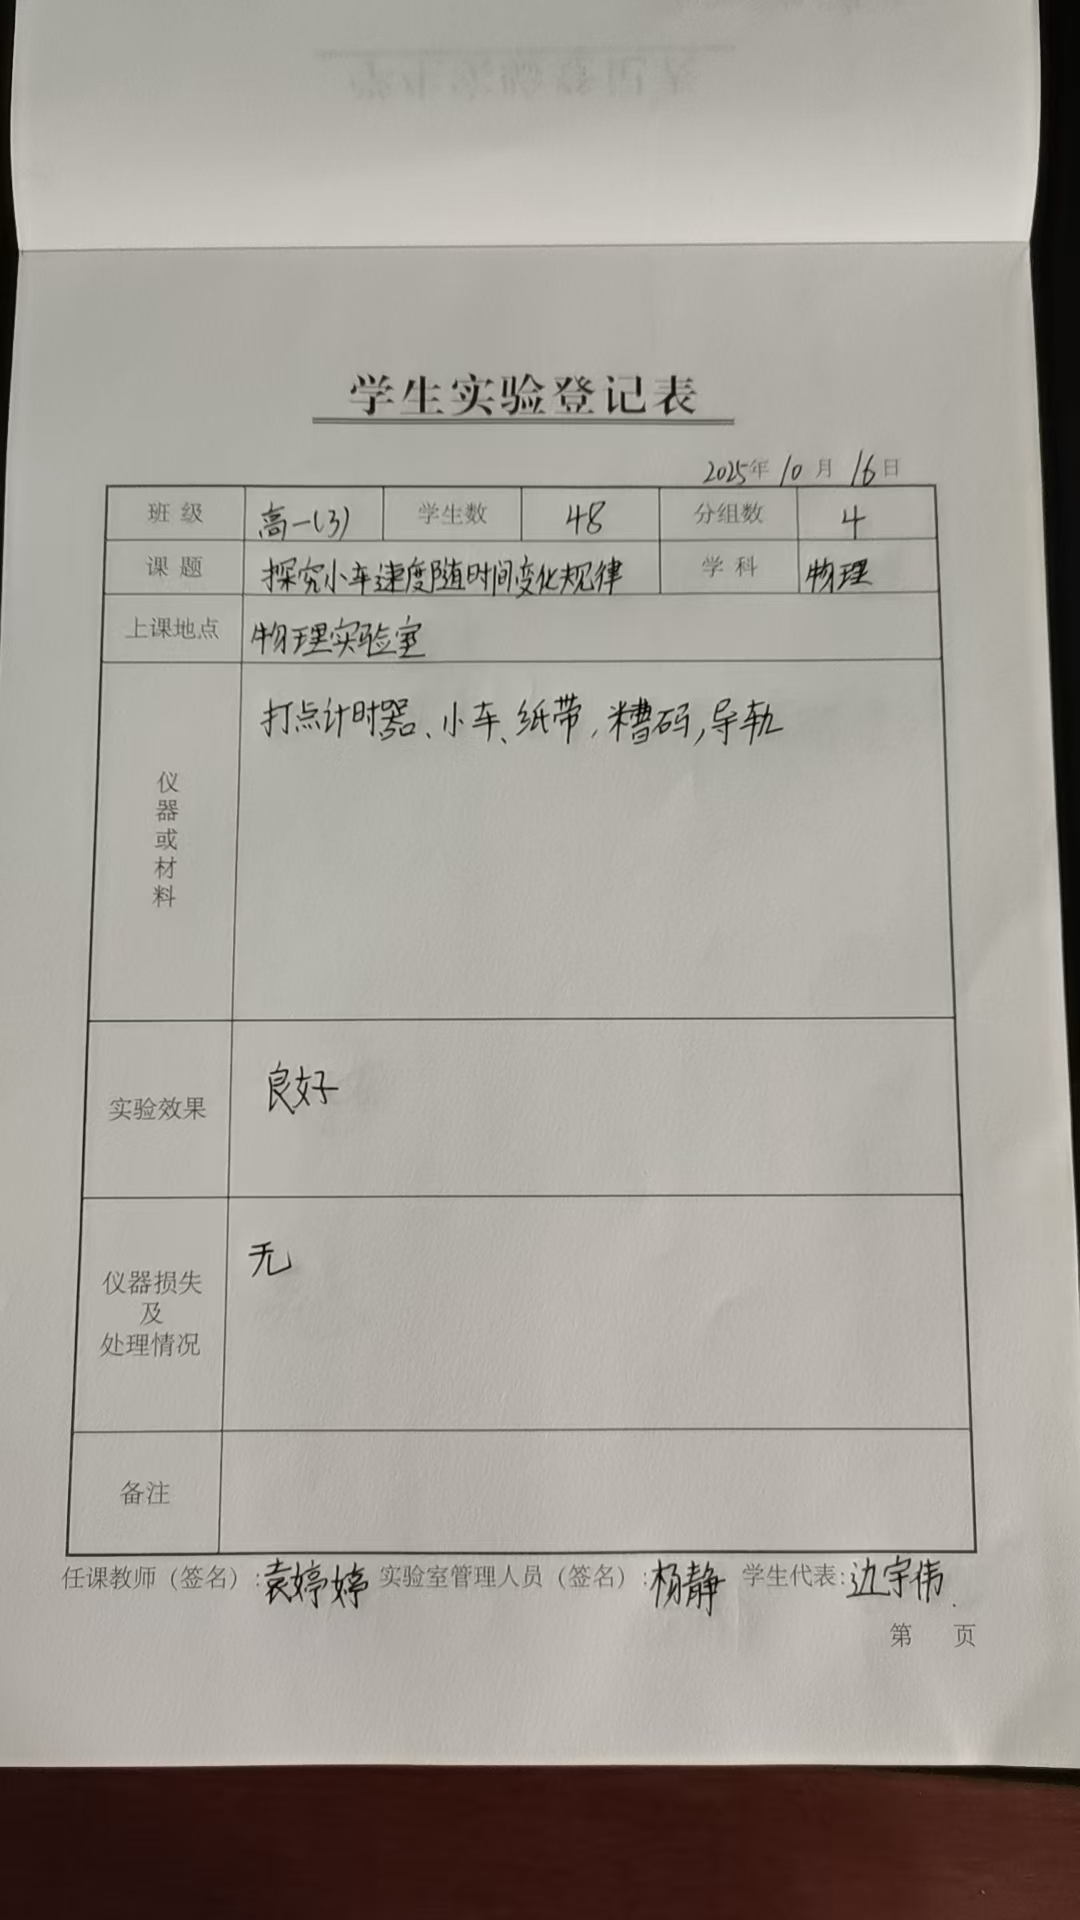 学生实验登记表
2025年 10 月 16 日
班 级 高一(3) 学生数 48 分组数 4
课 题 探究小车速度随时间变化规律 学 科 物理
上课地点 物理实验室
仪器或材料 打点计时器、小车、纸带,槽码,导轨
实验效果 良好
仪器损失
及
处理情况
无
备注
任课教师（签名）:袁婷婷 实验室管理人员（签名）:杨静 学生代表:边宇伟.
第 页